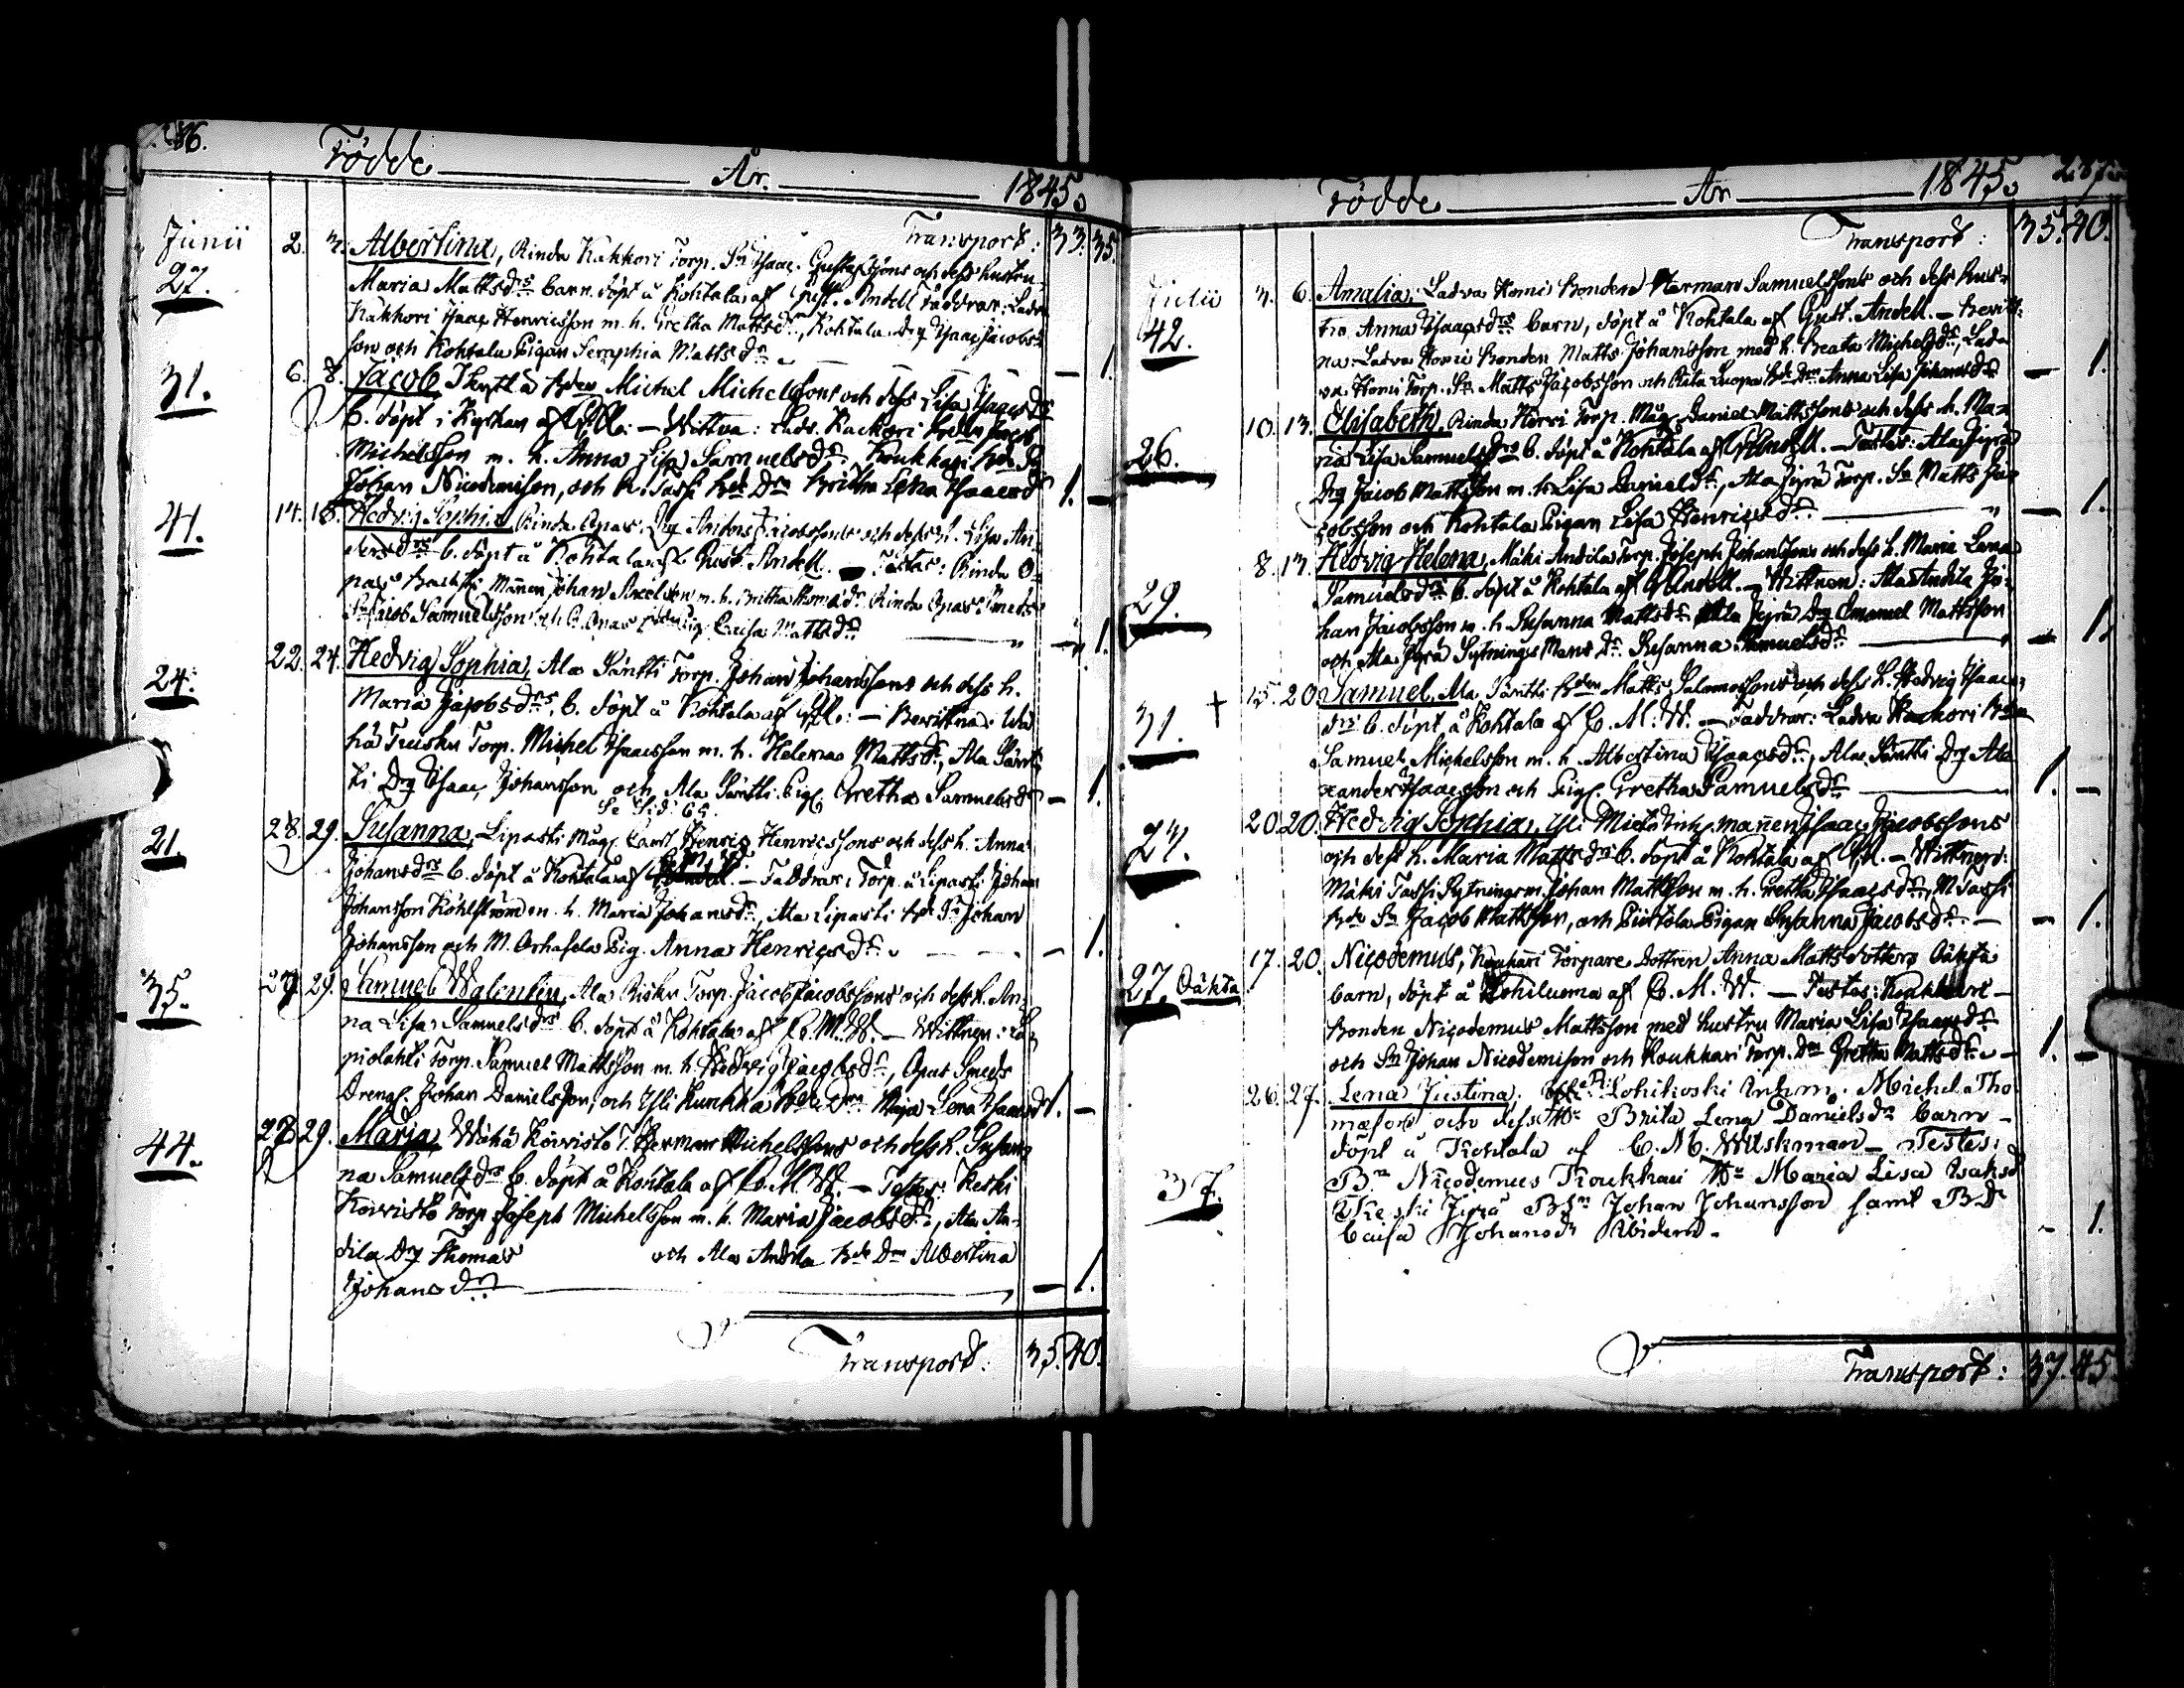 Födde År. 1845.
Transport: 33. 35.
Junii 2. 3. Albertina, Rinda Kakkori Torp. Sn Isaac Gustafssons och dess hustru
27. Maria Mattsdrs barn döpt å Kohtala af Gust. Andell Faddrar: Ladva
Kakkori Isaac Henricsson m. h. Gretha Mattsdr, Kohtala Drg Isaac Jacobs-
son och Kohtala Pigan Seraphia Mattsdr — 1.
31. 6. 8. Jacob, Michel Michelssons och dess Lisa Isaacsdrs
b. döpt i Kyrkan af — Wittna: Ladv. Kackori Jacob
Michelsson m. h. Anna Lisa Samuelsdr. Koukkari
Johan Nicodemison, och Britha Lena Isaacsdr 1. —
41. 14. 18. Hedvig Sophia, Rinda Opas Drg Antons Jacobssons och dess h. Lisa An-
dersdrs b. döpt å Kohtala af Gust. Andell. — Testes: Rinda O-
pas Backstu Mannen Johan Axelsson m. h. Britha Thomædr Rinda Opas Smeds
Sn Jacob Samuelsson och Pig. Caisa Mattsdr — 1.
24. 22. 24. Hedvig Sophia, Ala Säntti Torp. Johan Johanssons och dess h.
Maria Jacobsdrs, b. döpt å Kohtala af — Bevittna: Wä
hä Treisku Torp. Michel Isaacsson m. h. Helena Mattsdr, Ala Sänt-
ti Drg Isaac Johansson och Ala Säntti Pig. Gretha Samuelsdr — 1.
Se Sid. 65.
21. 28. 29. Susanna, Lipasti Måg Henric Henricssons och dess h. Anna
Johansdrs b. döpt å Kohtala af C. M. W. — Faddrar: Torp. å Lipasti Johan
Johansson Kohlström m. h. Maria Johansdr, Ala Lipasti Sn Johan
Johansson och M. Orhasela Pig. Anna Henricsdr. — 1.
35. 27. 29. Samuel Walentin, Ala Torp. Jacob Jacobssons och dess h. An-
na Lisa Samuelsdrs b. döpt å Kohtala af C. M. W. — Wittnen: La-
piolahti Torp. Samuel Mattsson m. h. Hedvig Jacobsdr, Opas Smeds
Dreng. Johan Danielsson, och Yli Kunkka Maja Lena Isaacsdr 1. —
44. 27. 29. Maria, Wähä Koivisto T. Herman Michelssons och dess h. Susan-
na Samuelsdrs b. döpt å Kohtala af C. M. W. — Testes: Keski
Koivisto Torp. Joseph Michelsson m. h. Maria Jacobsdr, Ala An-
dila Drg Thomas och Ala Andila Albertina
Johansdr — 1.
Transport: 35. 40.
Födde År 1845. 287.
Transport: 35. 40.
Julii 3. 6. Amalia, Ladva Homi Bonden Herman Samuelssons och dess hus-
42. tro Anna Isaacsdrs barn, döpt å Kohtala af Gust. Andell. — Bevitt-
na: Ladva Homi Bonden Matts Johansson med h. Beata Michelsdr, Lad-
va Homi Torp. Sn Matts Jacobsson och Anna Lisa Johansdr — 1.
26. 10. 13. Elisabeth, Rinda Torp. Måg Daniel Mattssons och dess h. Ma-
ria Lisa Samuelsdrs b. döpt å Kohtala af G. Andell. — Testes: Ala Jyrä
Drg Jacob Mattsson m. h. Lisa Danielsdr, Ala Jyrä Torp. Sn Matts Ja-
cobsson och Kohtala Pigan Lisa Henricsdr — 1.
29. 8. 13. Hedvig Helena, Mäki Andila Torp. Joseph Johanssons och dess h. Maria Lena
Samuelsdrs b. döpt å Kohtala af G. Andell. — Wittnen: Ala Andila Jo-
han Jacobsson m. h. Susanna Mattsdr Ala Jyrä Drg Emanuel Mattsson
och Ala Jyrä Sytnings Mans Dr Susanna Samuelsdr — 1.
31. † 15. 20. Samuel, Ala Säntti Matts Salomonssons och dess h. Hedvig Isaacs-
drs b. döpt å Kohtala af C. M. W. — Faddrar: Ladva Kackori
Samuel Michelsson m. h. Albertina Isaacsdr, Ala Säntti Drg Ale
xander Isaacsson och Pig. Gretha Samuelsdr 1. —
27. 20. 20. Hedvig Sophia, Yli Mieto Inh. mannen Isaac Jacobssons
och dess h. Maria Mattsdrs b. döpt å Kohtala af — Wittnen:
Mäki Tassi Sytningsm. Johan Mattsson m. h. Gretha Isaacsdr, M. Tassi
Sn Jacob Mattsson, och Pigan Susanna Jacobsdr. — 1.
27. Oäkta 17. 20. Nicodemus, Koukkari Torpare Dottren Anna Matts dotters Oäkta
barn, döpt å Kohiluoma af C. M. W. — Testes: Koukkari
Bonden Nicodemus Mattsson med hustru Maria Lisa Isaacsdr
och Sn Johan Nicodemison och Koukkari Torp. Dn Gretha Mattsdr 1. —
37. 26. 27. Lena Justina, Lohikoski Inh.m. Michel Tho
mæsons och dess Hu Brita Lena Danielsdr barn —
döpt å Kohtala af C. M. Wilskman — Testes:
Bn Nicodemus Koukkari Hu Maria Lisa Isaksdr
Keski Jyrä BSn Johan Johansson samt BDr
Caisa Johansdr Ibidem. — 1.
Transport: 37. 45.